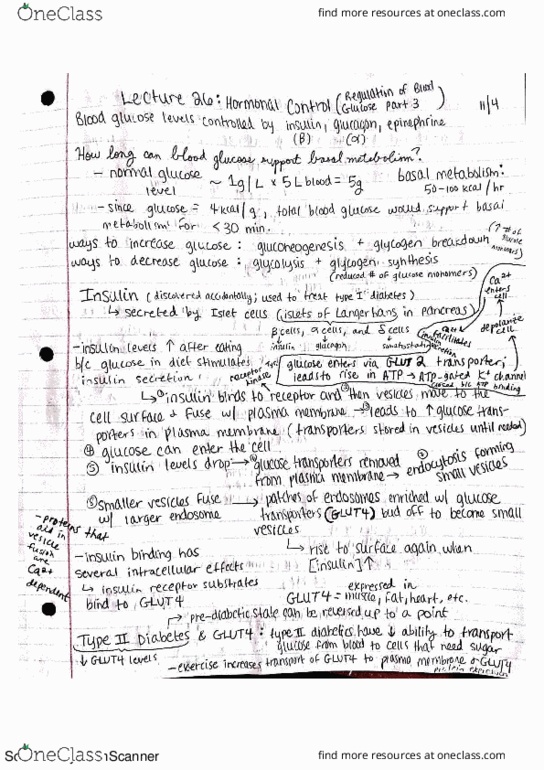 OneClass
find more resources at oneclass.com
Lecture 26: Hormonal Control (Regulation of Blood Glucose Part 3) 11/4
Blood glucose levels controlled by insulin, glucagon, epinephrine
(β) (α)
How long can blood glucose support basal metabolism?
- normal glucose level ~ 1g/L x 5L blood = 5g
basal metabolism: 50-100 kcal/hr
- since glucose = 4kcal/g, total blood glucose would support basal
metabolism for < 30 min.
ways to increase glucose: gluconeogenesis + glycogen breakdown (↑ # of glucose monomers)
ways to decrease glucose: glycolysis + glycogen synthesis
(reduced # of glucose monomers)
Insulin (discovered accidentally; used to treat type I diabetes)
↳ secreted by Islet cells (islets of Langerhans in pancreas)
β cells, α cells, and δ cells
insulin glucagon somatostatin
Ca2+ enters cell
depolarize cell
facilitates insulin secretion
- insulin levels ↑ after eating
b/c glucose in diet stimulates
insulin secretion
glucose enters via GLUT 2 transporter;
leads to rise in ATP → ATP-gated K+ channel
closed b/c ATP binding
receptor kinase
↳ ① insulin binds to receptor and ② then vesicles move to the
cell surface & fuse w/ plasma membrane → ③ leads to ↑ glucose trans-
porters in plasma membrane (transporters stored in vesicles until needed)
④ glucose can enter the cell
⑤ insulin levels drop → glucose transporters removed
from plasma membrane → endocytosis forming
small vesicles
smaller vesicles fuse
w/ larger endosome
→ patches of endosomes enriched w/ glucose
transporters (GLUT4) bud off to become small
vesicles
↳ rise to surface again when
[insulin] ↑
- proteins that
aid in
vesicle
fusion are
Ca2+
dependent
- insulin binding has
several intracellular effects
↳ insulin receptor substrates
bind to GLUT4
expressed in
GLUT4 = muscle, fat, heart, etc.
pre-diabetic state can be reversed up to a point
Type II Diabetes & GLUT4: type II diabetics have ↓ ability to transport
glucose from blood to cells that need sugar
↓ GLUT4 levels
- exercise increases transport of GLUT4 to plasma membrane & GLUT4
protein expression
OneClass
Scanner
find more resources at oneclass.com